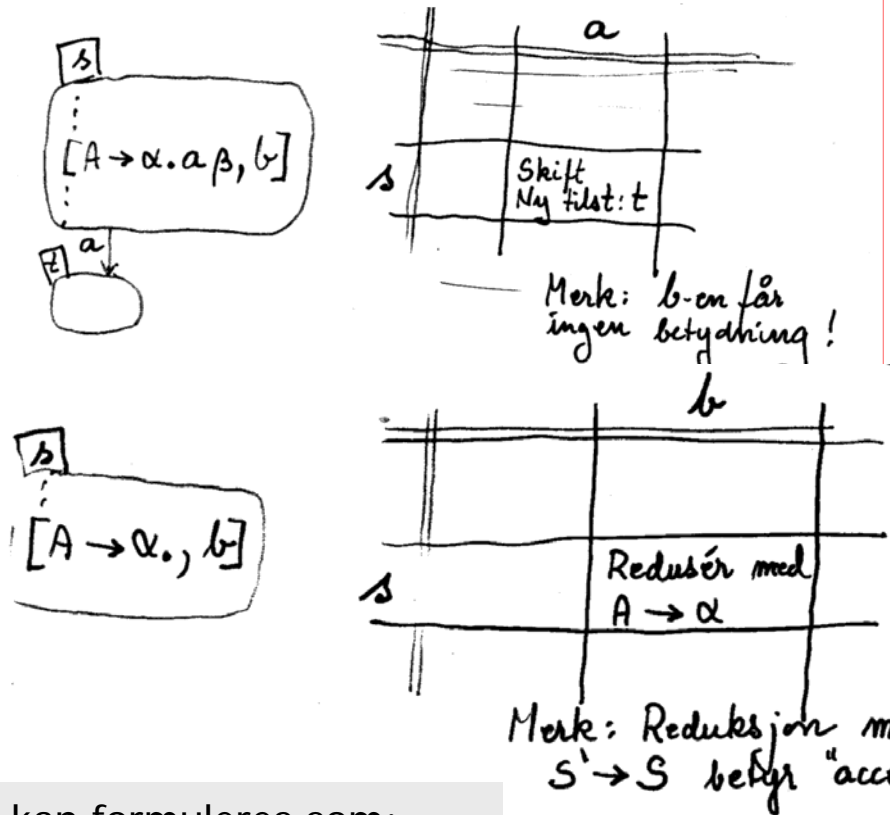 s
[A → α.aβ, b]
a
t
a
s
Skift
Ny tilst: t
Merk: b-en får
ingen betydning!
s
[A → α., b]
b
s
Redusér med
A → α
Merk: Reduksjon m
S' → S betyr "acc
kan formuleres som: